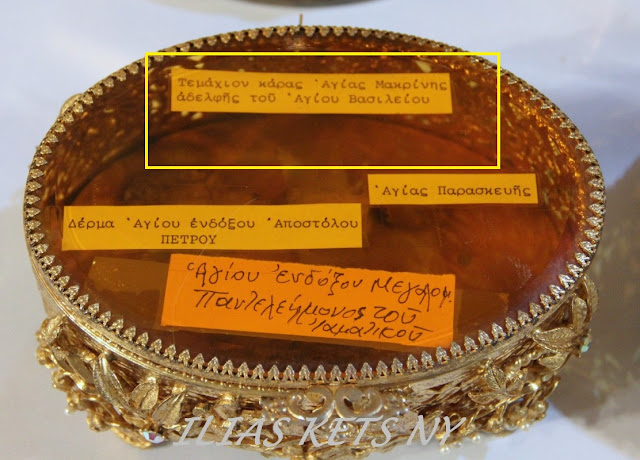 Τεμάχιον κάρας Ἁγίας Μακρίνης
ἀδελφῆς τοῦ Ἁγίου Βασιλείου
Ἁγίας Παρασκευῆς
Δέρμα Ἁγίου ἐνδόξου Ἀποστόλου
ΠΕΤΡΟΥ
Ἁγίου Ἐνδόξου Μεγαλομ.
Παντελεήμονος τοῦ
Ἰαματικοῦ
ILIAS KETS NY